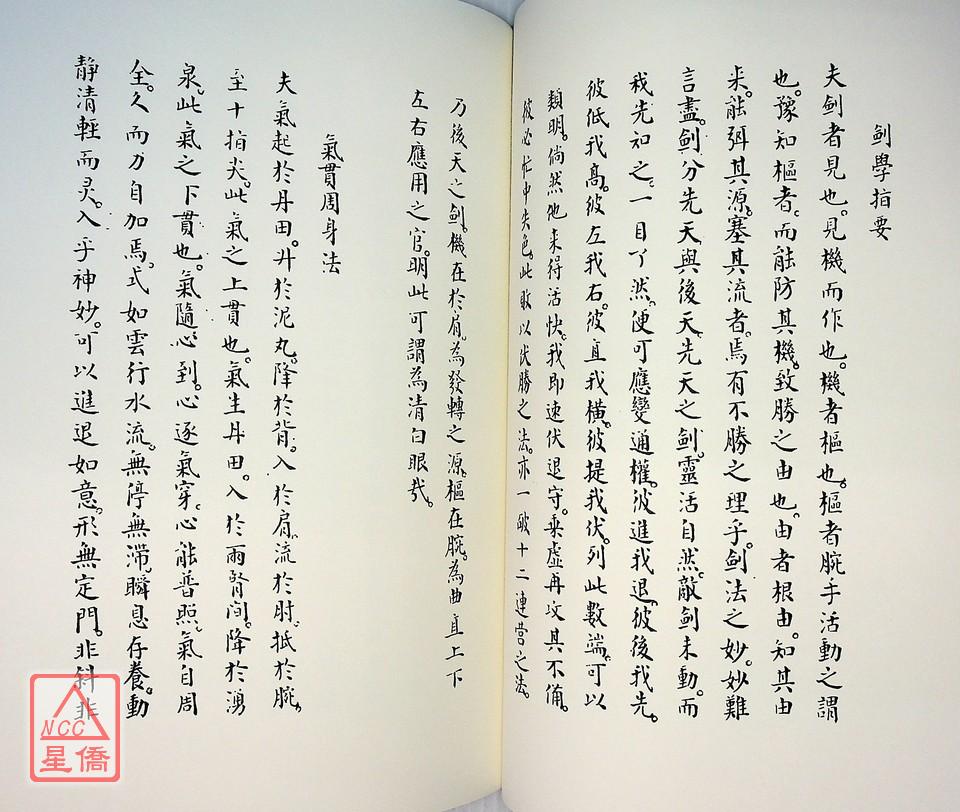 劍學指要
夫劍者見也。見機而作也。機者樞也。樞者腕手活動之謂
也。豫知樞者。而能防其機。致勝之由也。由者根由。知其由
来。能弭其源。塞其流者。焉有不勝之理乎。劍法之妙。妙難
言盡。劍分先天與後天。先天之劍。靈活自然。敵劍未動。而
我先知之。一目了然。便可應變通權。彼進我退。彼後我先。
彼低我高。彼左我右。彼直我横。彼提我伏。列此數端。可以
類明。倘然他来得活快。我即速伏退守。乘虛再攻其不備。
彼必忙中失色。此敗以伏勝之法。亦一破十二連营之法。
乃後天之劍。機在於肩。為發轉之源。樞在腕。為曲直上下
左右應用之官。明此可謂為清白眼哉。
氣貫周身法
夫氣起於丹田。升於泥丸。降於背。入於肩。流於肘。抵於腕。
至十指尖。此氣之上貫也。氣生丹田。入於兩腎间。降於湧
泉。此氣之下貫也。氣隨心到。心逐氣穿。心能普照。氣自周
全。久而力自加焉。式如雲行水流。無停無滯。瞬息存養。動
静清輕而灵。入乎神妙。可以進退如意。形無定門。非斜非
NCC
星僑